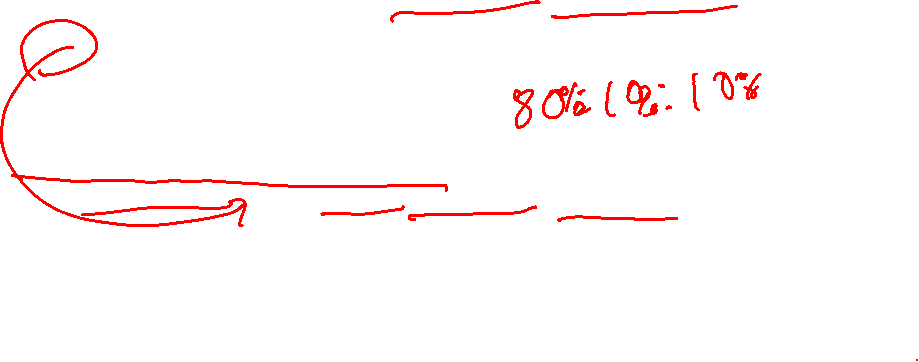 80% 10% 10%